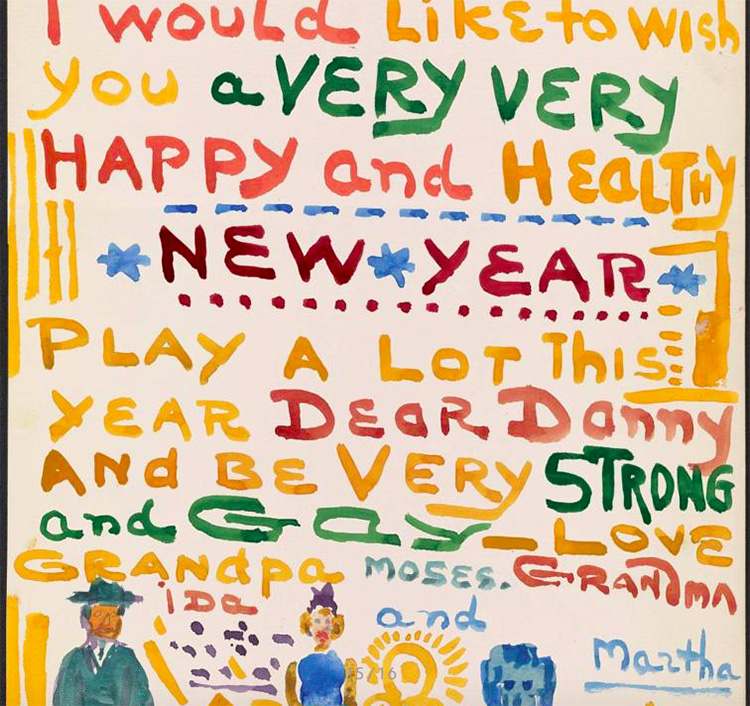 I would Like to wish
you a VERY VERY
HAPPY and HEALTHY
NEW YEAR
PLAY A LOT This
YEAR DEAR Danny
ANd BE VERY STRONG
and GAY – LOVE
GRANdpa MOSES. GRANdMA
iDa and
Martha
15/16